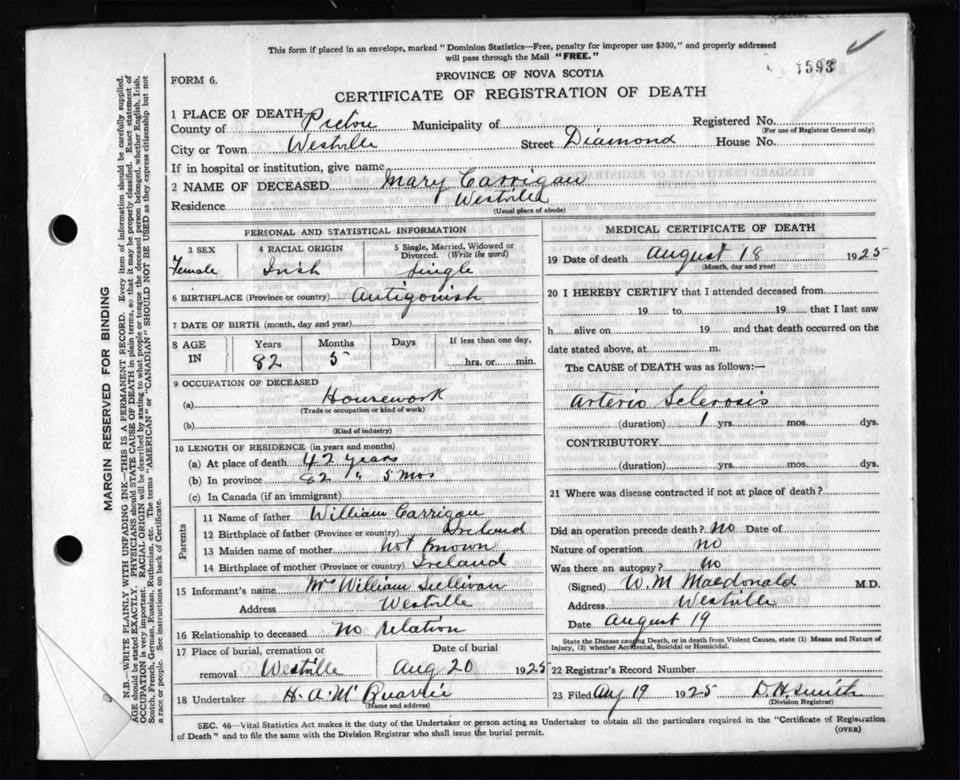 This form if placed in an envelope, marked "Dominion Statistics—Free, penalty for improper use $300," and properly addressed
will pass through the Mail "FREE."
1593
FORM 6.
PROVINCE OF NOVA SCOTIA
CERTIFICATE OF REGISTRATION OF DEATH
1 PLACE OF DEATH
County of Pictou Municipality of Registered No.
(For use of Registrar General only)
City or Town Westville Street Diamond House No.
If in hospital or institution, give name
2 NAME OF DECEASED Mary Carrigan
Residence Westville
(Usual place of abode)
PERSONAL AND STATISTICAL INFORMATION
3 SEX 4 RACIAL ORIGIN 5 Single, Married, Widowed or
Divorced. (Write the word)
Female Irish Single
6 BIRTHPLACE (Province or country) Antigonish
7 DATE OF BIRTH (month, day and year)
8 AGE IN Years Months Days If less than one day,
82 5 hrs. or min.
9 OCCUPATION OF DECEASED
(a) Housework
(Trade or occupation or kind of work)
(b)
(Kind of industry)
10 LENGTH OF RESIDENCE (in years and months)
(a) At place of death 42 years
(b) In province 82 " 5 mos
(c) In Canada (if an immigrant)
Parents
11 Name of father William Carrigan
12 Birthplace of father (Province or country) Ireland
13 Maiden name of mother not known
14 Birthplace of mother (Province or country) Ireland
15 Informant's name Mrs William Sullivan
Address Westville
16 Relationship to deceased no relation
17 Place of burial, cremation or Date of burial
removal Westville Aug 20 1925
18 Undertaker H. A. McQuarrie
(Name and address)
MEDICAL CERTIFICATE OF DEATH
19 Date of death August 18 1925
(Month, day and year)
20 I HEREBY CERTIFY that I attended deceased from
19 to 19 that I last saw
h alive on 19 and that death occurred on the
date stated above, at m.
The CAUSE of DEATH was as follows:—
Arterio Sclerosis
(duration) 1 yrs. mos. dys.
CONTRIBUTORY
(duration) yrs. mos. dys.
21 Where was disease contracted if not at place of death?
Did an operation precede death? no Date of
Nature of operation no
Was there an autopsy? no
(Signed) W. M. Macdonald M.D.
Address Westville
Date August 19
State the Disease causing Death, or in death from Violent Causes, state (1) Means and Nature of
Injury, (2) whether Accidental, Suicidal or Homicidal.
22 Registrar's Record Number
23 Filed Aug 19 1925 D. H. Smith
(Division Registrar)
SEC. 46—Vital Statistics Act makes it the duty of the Undertaker or person acting as Undertaker to obtain all the particulars required in the "Certificate of Registration
of Death" and to file the same with the Division Registrar who shall issue the burial permit.
(OVER)
MARGIN RESERVED FOR BINDING
N.B.—WRITE PLAINLY WITH UNFADING INK—THIS IS A PERMANENT RECORD. Every item of information should be carefully supplied.
AGE should be stated EXACTLY. PHYSICIANS should STATE CAUSE OF DEATH in plain terms, so that it may be properly classified. Exact statement of
OCCUPATION is very important. RACIAL ORIGIN will be described by stating to what people or tongue the deceased person belonged, whether English, Irish,
Scotch, French, German, Russian, Ruthenian, etc. The terms "AMERICAN" or "CANADIAN" SHOULD NOT BE USED as they express citizenship but not
a race or people. See instructions on back of Certificate.